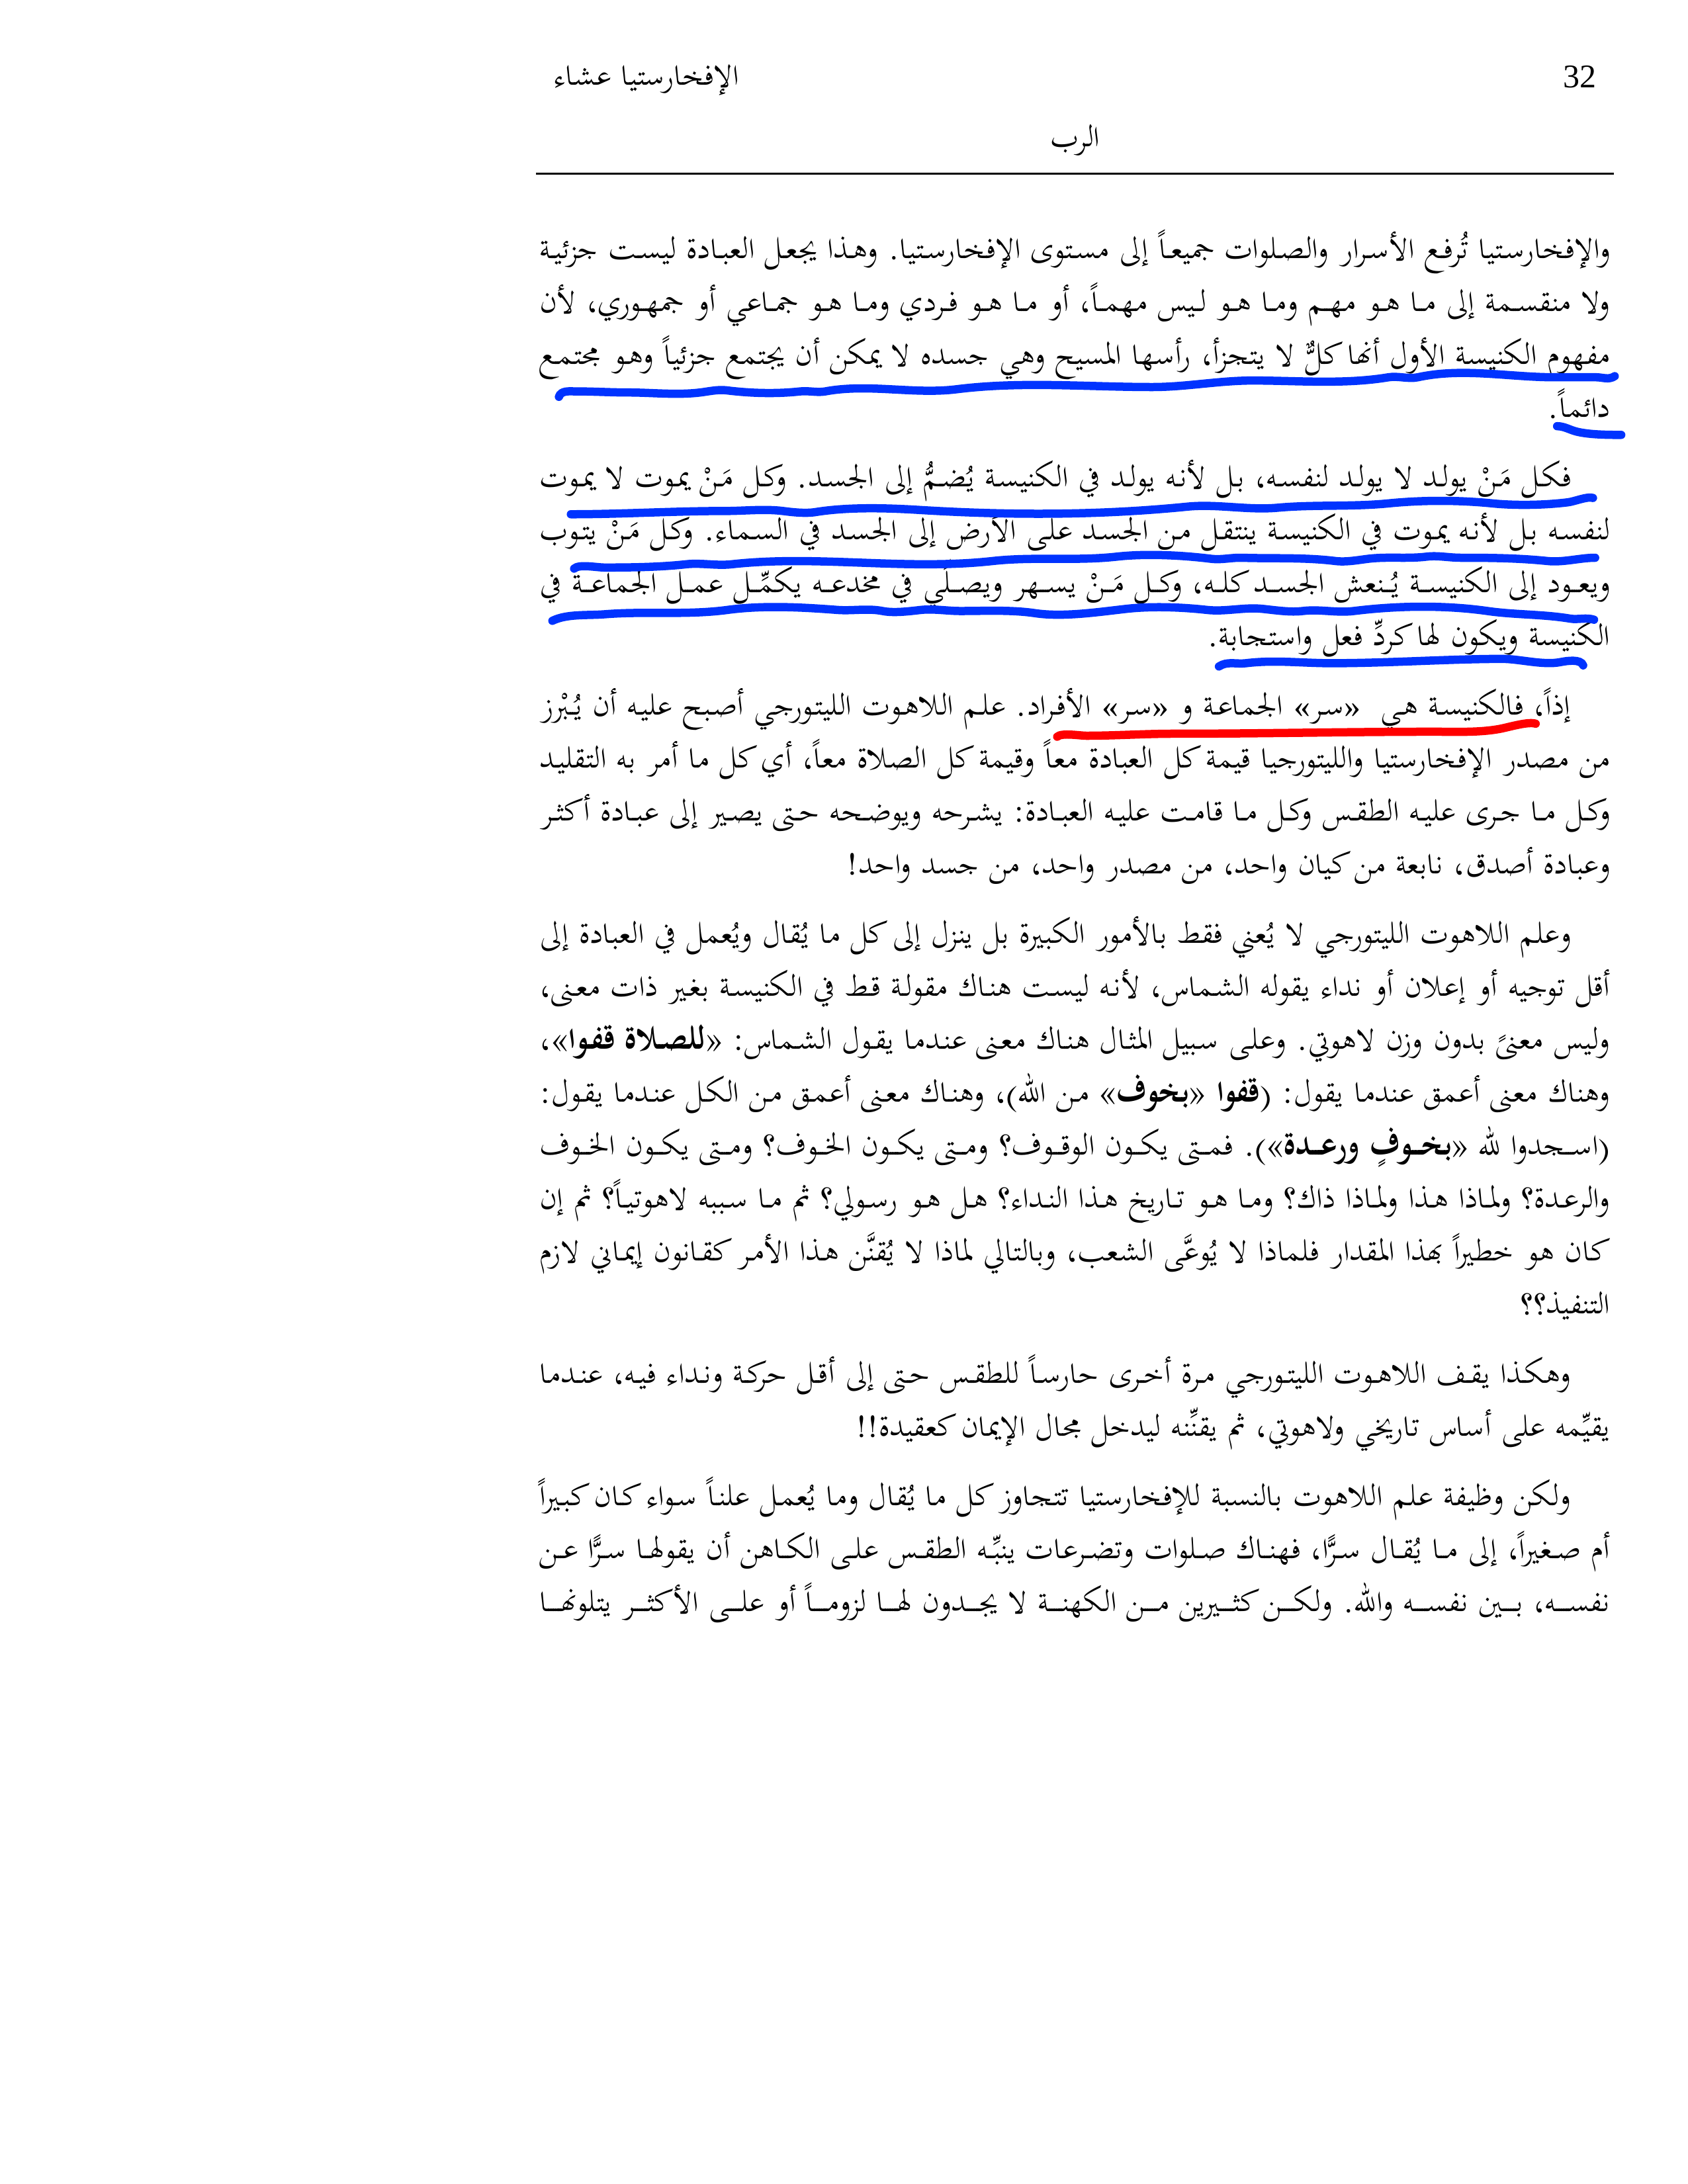 32 الإفخارستيا عشاء
الرب
والإفخارستيا تُرفع الأسرار والصلوات جميعاً إلى مستوى الإفخارستيا. وهذا يجعل العبادة ليست جزئية
ولا منقسمة إلى ما هو مهم وما هو ليس مهماً، أو ما هو فردي وما هو جماعي أو جمهوري، لأن
مفهوم الكنيسة الأول أنها كلٌّ لا يتجزأ، رأسها المسيح وهي جسده لا يمكن أن يجتمع جزئياً وهو مجتمع
دائماً.
فكل مَنْ يولد لا يولد لنفسه، بل لأنه يولد في الكنيسة يُضمُّ إلى الجسد. وكل مَنْ يموت لا يموت
لنفسه بل لأنه يموت في الكنيسة ينتقل من الجسد على الأرض إلى الجسد في السماء. وكل مَنْ يتوب
ويعود إلى الكنيسة يُنعش الجسد كله، وكل مَنْ يسهر ويصلِّي في مخدعه يكمِّل عمل الجماعة في
الكنيسة ويكون لها كردِّ فعل واستجابة.
إذاً، فالكنيسة هي «سر» الجماعة و «سر» الأفراد. علم اللاهوت الليتورجي أصبح عليه أن يُبْرز
من مصدر الإفخارستيا والليتورجيا قيمة كل العبادة معاً وقيمة كل الصلاة معاً، أي كل ما أمر به التقليد
وكل ما جرى عليه الطقس وكل ما قامت عليه العبادة: يشرحه ويوضحه حتى يصير إلى عبادة أكثر
وعبادة أصدق، نابعة من كيان واحد، من مصدر واحد، من جسد واحد!
وعلم اللاهوت الليتورجي لا يُعني فقط بالأمور الكبيرة بل ينزل إلى كل ما يُقال ويُعمل في العبادة إلى
أقل توجيه أو إعلان أو نداء يقوله الشماس، لأنه ليست هناك مقولة قط في الكنيسة بغير ذات معنى،
وليس معنىً بدون وزن لاهوتي. وعلى سبيل المثال هناك معنى عندما يقول الشماس: «للصلاة قفوا»،
وهناك معنى أعمق عندما يقول: (قفوا «بخوف» من الله)، وهناك معنى أعمق من الكل عندما يقول:
(اسجدوا لله «بخوفٍ ورعدة»). فمتى يكون الوقوف؟ ومتى يكون الخوف؟ ومتى يكون الخوف
والرعدة؟ ولماذا هذا ولماذا ذاك؟ وما هو تاريخ هذا النداء؟ هل هو رسولي؟ ثم ما سببه لاهوتياً؟ ثم إن
كان هو خطيراً بهذا المقدار فلماذا لا يُوعَّى الشعب، وبالتالي لماذا لا يُقنَّن هذا الأمر كقانون إيماني لازم
التنفيذ؟؟
وهكذا يقف اللاهوت الليتورجي مرة أخرى حارساً للطقس حتى إلى أقل حركة ونداء فيه، عندما
يقيِّمه على أساس تاريخي ولاهوتي، ثم يقنِّنه ليدخل مجال الإيمان كعقيدة!!
ولكن وظيفة علم اللاهوت بالنسبة للإفخارستيا تتجاوز كل ما يُقال وما يُعمل علناً سواء كان كبيراً
أم صغيراً، إلى ما يُقال سرًّا، فهناك صلوات وتضرعات ينبِّه الطقس على الكاهن أن يقولها سرًّا عن
نفسه، بين نفسه والله. ولكن كثيرين من الكهنة لا يجدون لها لزوماً أو على الأكثر يتلونها